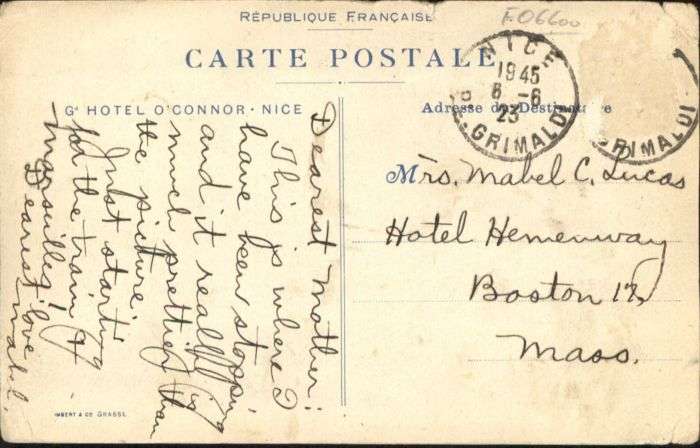 RÉPUBLIQUE FRANÇAISE
F06600
CARTE POSTALE
Gd HOTEL O'CONNOR - NICE
Adresse du Destinataire
NICE
1945
6 - 6
23
GRIMALDI
GRIMALDI
Mrs. Mabel C. Lucas
Hotel Hemenway
Boston 17,
Mass.
Dearest Mother:
This is where I
have been stopping
and it really is
much prettier than
the picture.
Just starting
for the train of
Marseilles!
Dearest love,
Mabel.
IMBERT & DE GRASSE.